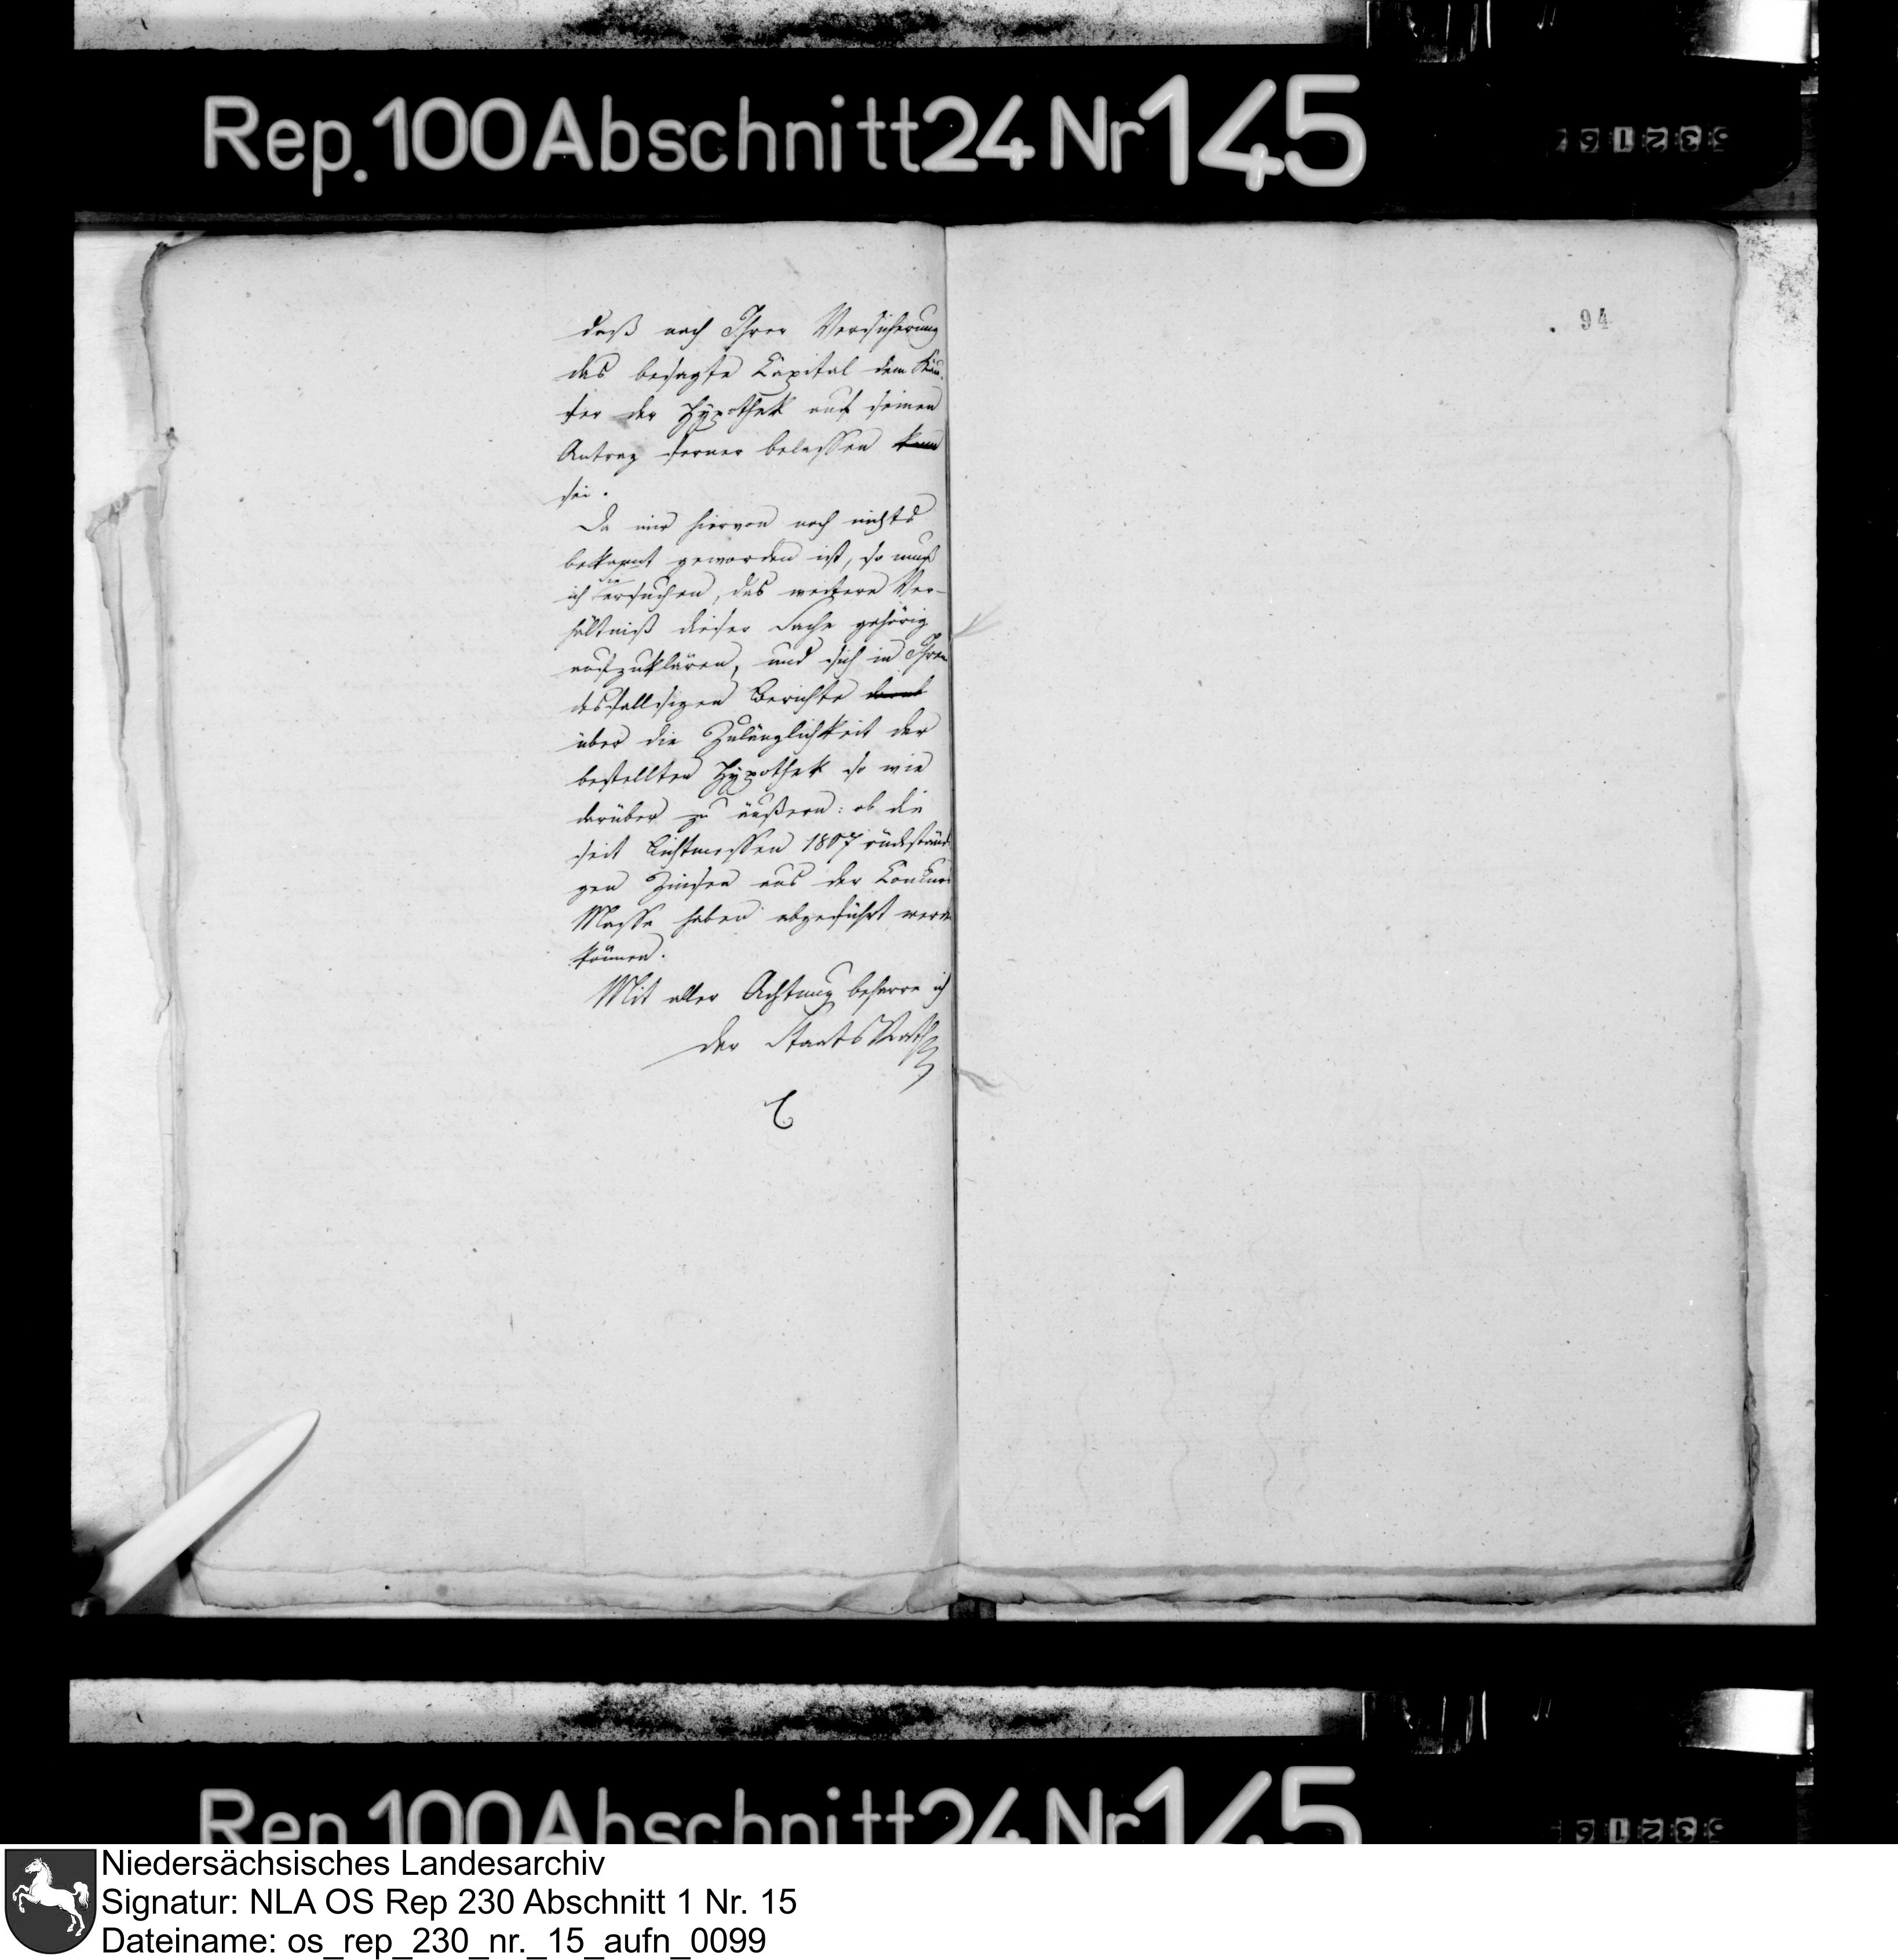 Rep. 100 Abschnitt 24 Nr 145
94
daß nach Ihrer Versicherung
das besagte Capital dem Käu-
fer der Hypothek auf seinen
Antrag ferner belassen kann
sei.
Da mir hiervon noch nichts
bekannt geworden ist, so muß
ich Sie ersuchen, das weitere Ver-
hältniß dieser Sache gehörig
aufzuklären, und sich in Ihrem
desfallsigen Berichte
über die Zulänglichkeit der
bestellten Hypothek so wie
darüber zu äußern: ob die
seit Lichtmessen 1807 rückständi
gen Zinsen aus der Concurs
Masse haben abgeführt werden
können.
Mit aller Achtung beharre ich
der StaatsRath
Rep. 100 Abschnitt 24 Nr 145
Niedersächsisches Landesarchiv
Signatur: NLA OS Rep 230 Abschnitt 1 Nr. 15
Dateiname: os_rep_230_nr._15_aufn_0099